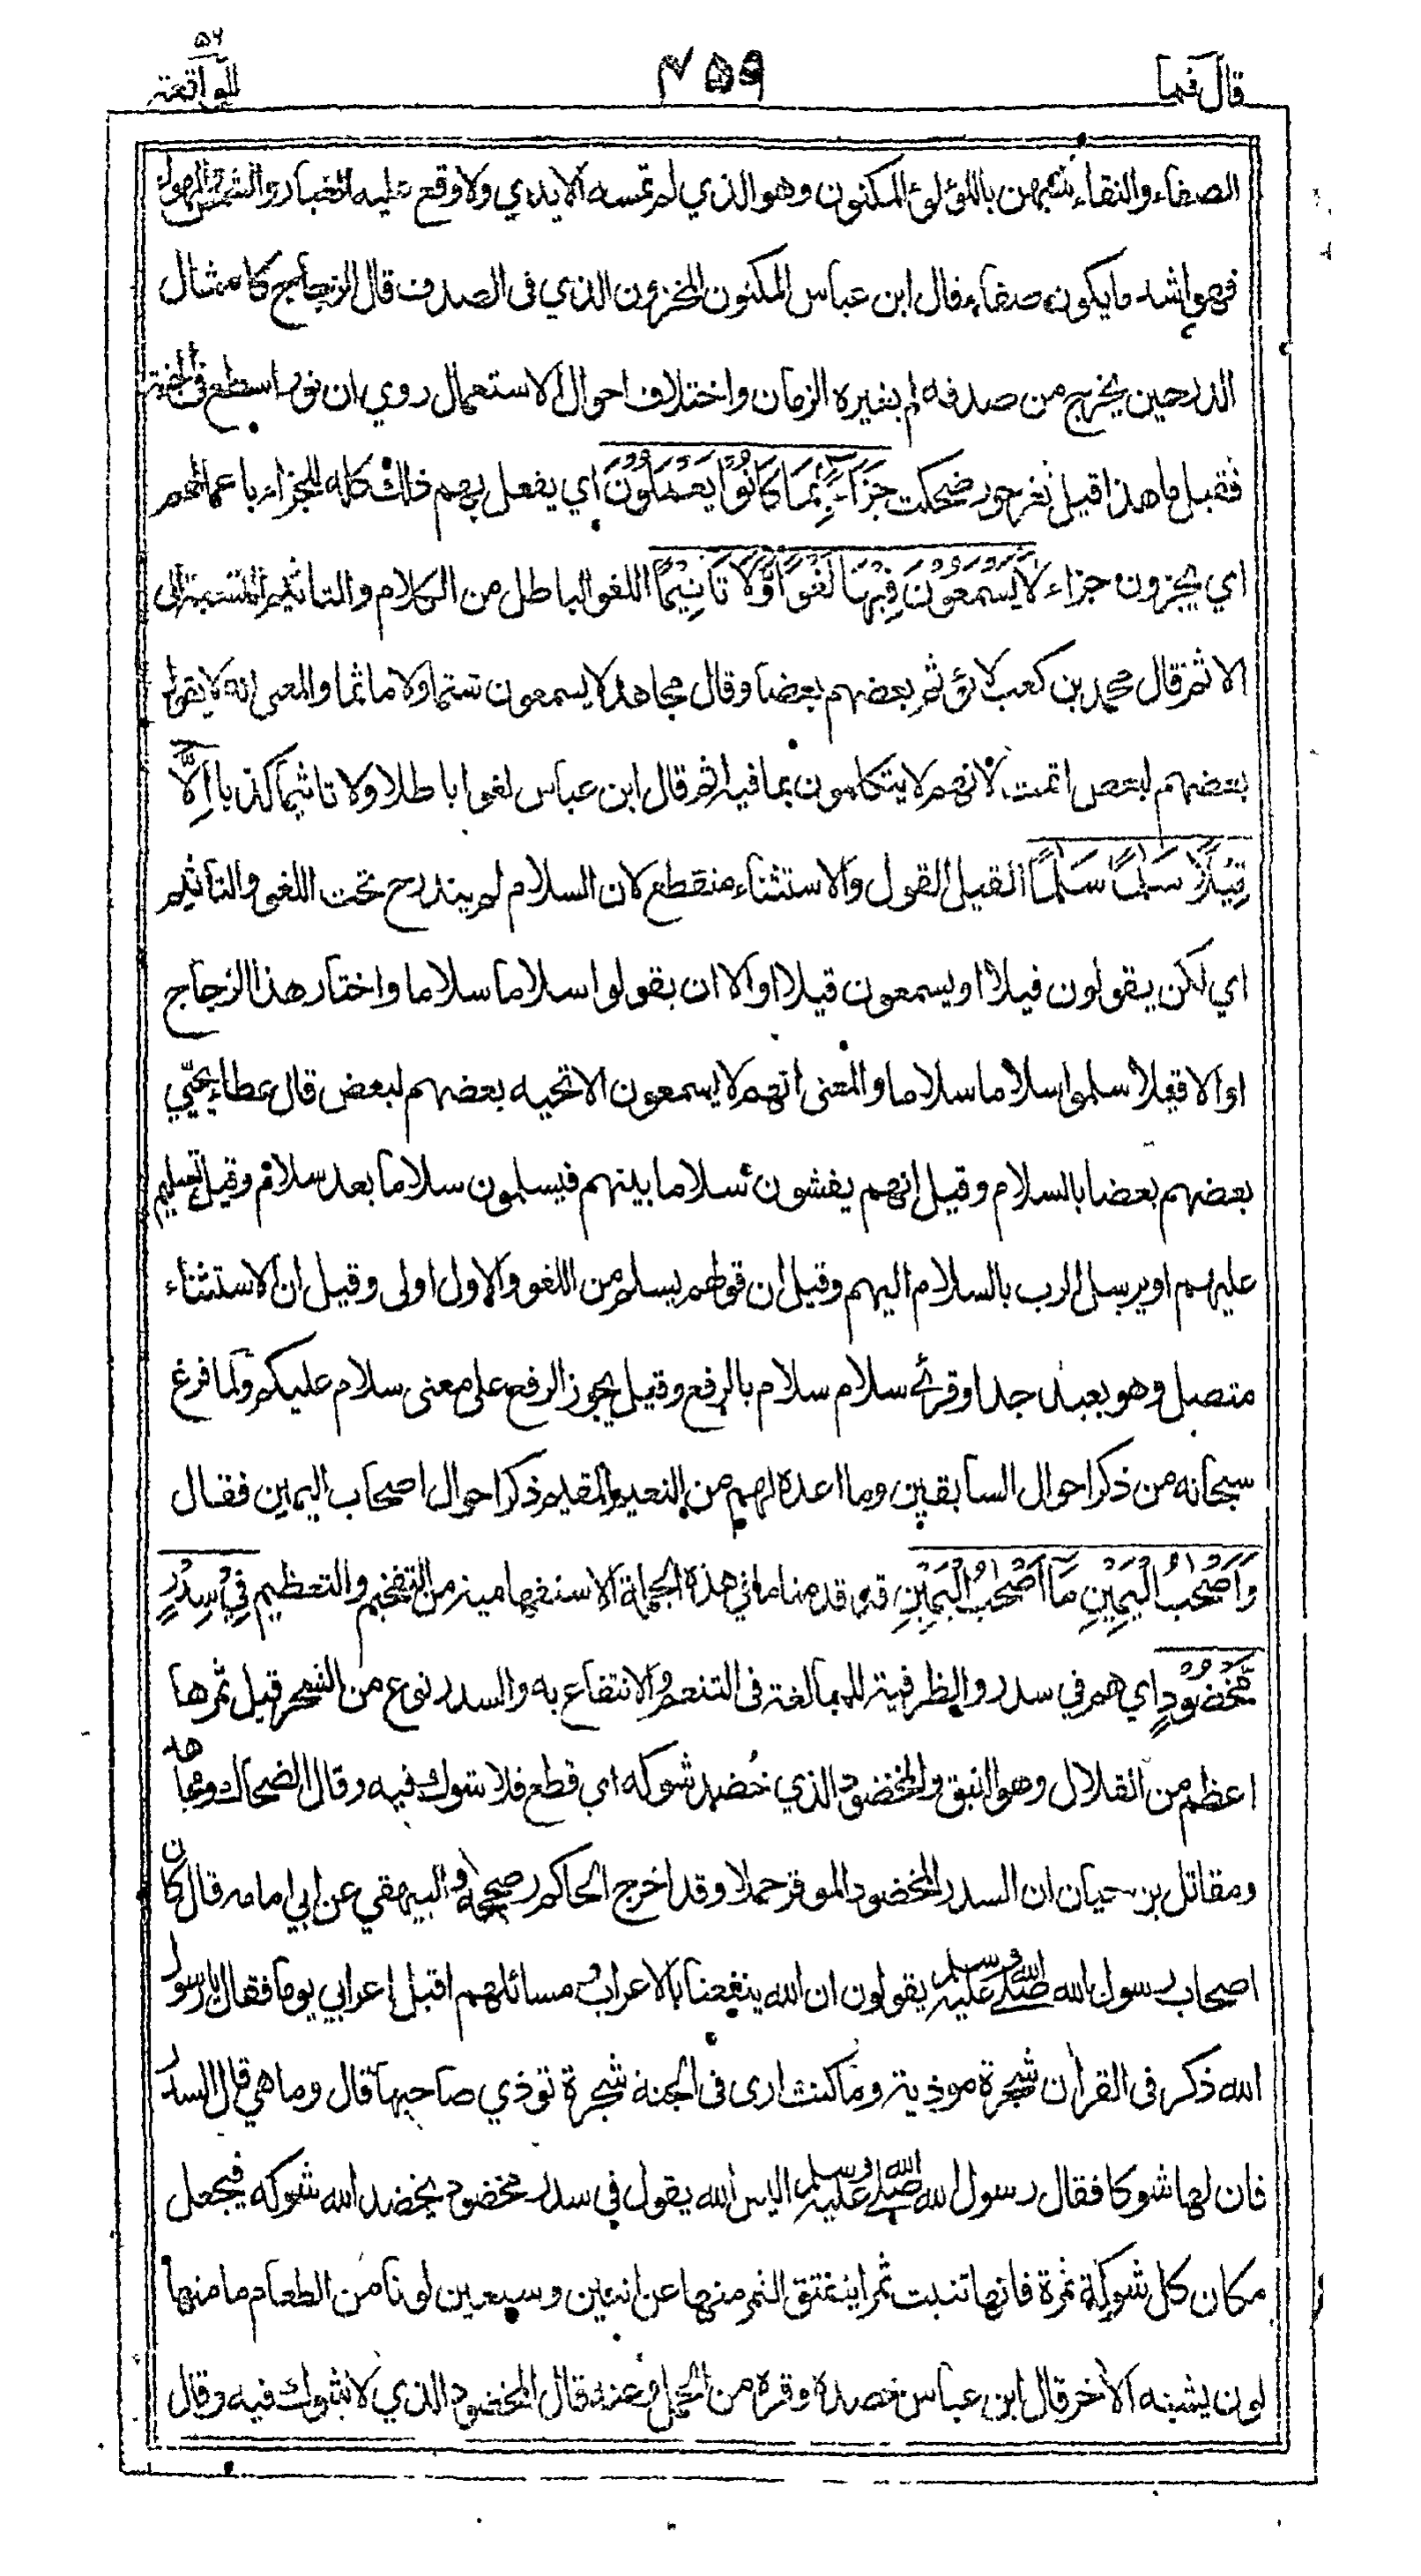 قال فما
٤٥٩
٥٦
الواقعة
الصفاء والنقاء شبههن باللؤلؤ المكنون وهو الذي لم تمسه الايدي ولا وقع عليه الغبار والشمس والهواء
فهو اشد ما يكون صفاء قال ابن عباس المكنون المخزون الذي في الصدف قال الزجاج كامثال
الدر حين يخرج من صدفه لم يغيره الزمان واختلاف احوال الاستعمال روي ان نورا سطع في الجنة
فقيل ما هذا قيل ثغر حور ضحكت جَزَاءً بِمَا كَانُوْا يَعْمَلُوْنَ اي يفعل بهم ذلك كله للجزاء باعمالهم
اي يجزون جزاء لَا يَسْمَعُوْنَ فِيْهَا لَغْوًا وَّلَا تَأْثِيْمًا اللغو الباطل من الكلام والتاثيم النسبة الى
الاثم قال محمد بن كعب لا يؤثم بعضهم بعضا وقال مجاهد لا يسمعون شتما ولا ماثما والمعنى انه لا يقول
بعضهم لبعض اثمت لانهم لا يتكلمون بما فيه اثم قال ابن عباس لغوا باطلا ولا تاثيما كذبا اِلَّا
قِيْلًا سَلٰمًا سَلٰمًا القيل القول والاستثناء منقطع لان السلام لم يندرج تحت اللغو والتاثيم
اي لكن يقولون قيلا او يسمعون قيلا او الا ان يقولوا سلاما سلاما واختار هذا الزجاج
او الا قيلا سلموا سلاما سلاما والمعنى انهم لا يسمعون الا تحيه بعضهم لبعض قال عطاء يحيّي
بعضهم بعضا بالسلام وقيل انهم يفشون سلاما بينهم فيسلمون سلاما بعد سلام وقيل تسليم
عليهم او يرسل الرب بالسلام اليهم وقيل ان قولهم يسلم من اللغو والاول اولى وقيل ان الاستثناء
متصل وهو بعيد جدا وقرئ سلام سلام بالرفع وقيل يجوز الرفع على معنى سلام عليكم ولما فرغ
سبحانه من ذكر احوال السابقين وما اعده لهم من النعيم المقيم ذكر احوال اصحاب اليمين فقال
وَاَصْحٰبُ الْيَمِيْنِ مَآ اَصْحٰبُ الْيَمِيْنِ قد قدمنا ما في هذه الجملة الاستفهامية من التفخيم والتعظيم فِيْ سِدْرٍ
مَّخْضُوْدٍ اي هم في سدر والظرفية للمبالغة في التنعم والانتفاع به والسدر نوع من الشجر قيل ثمرها
اعظم من القلال وهو النبق والمخضود الذي خُضد شوكه اي قطع فلا شوك فيه وقال الضحاك ومجاهد
ومقاتل بن حيان ان السدر المخضود الموقر حملا وقد اخرج الحاكم وصححه والبيهقي عن ابي امامه قال كان
اصحاب رسول الله صلى الله عليه وسلم يقولون ان الله ينفعنا بالاعراب مسائلهم اقبل اعرابي يوما فقال يا رسول
الله ذكر في القرآن شجرة موذية وما كنت ارى في الجنة شجرة توذي صاحبها قال وما هي قال السدر
فان لها شوكا فقال رسول الله صلى الله عليه وسلم اليس الله يقول في سدر مخضود يخضد الله شوكه فيجعل
مكان كل شوكة ثمرة فانها تنبت ثمرا ينفتق الثمر منها عن اثنين وسبعين لونا من الطعام ما منها
لون يشبه الآخر قال ابن عباس خضده وقره من الحمل وعنه قال المخضود الذي لا شوك فيه وقال